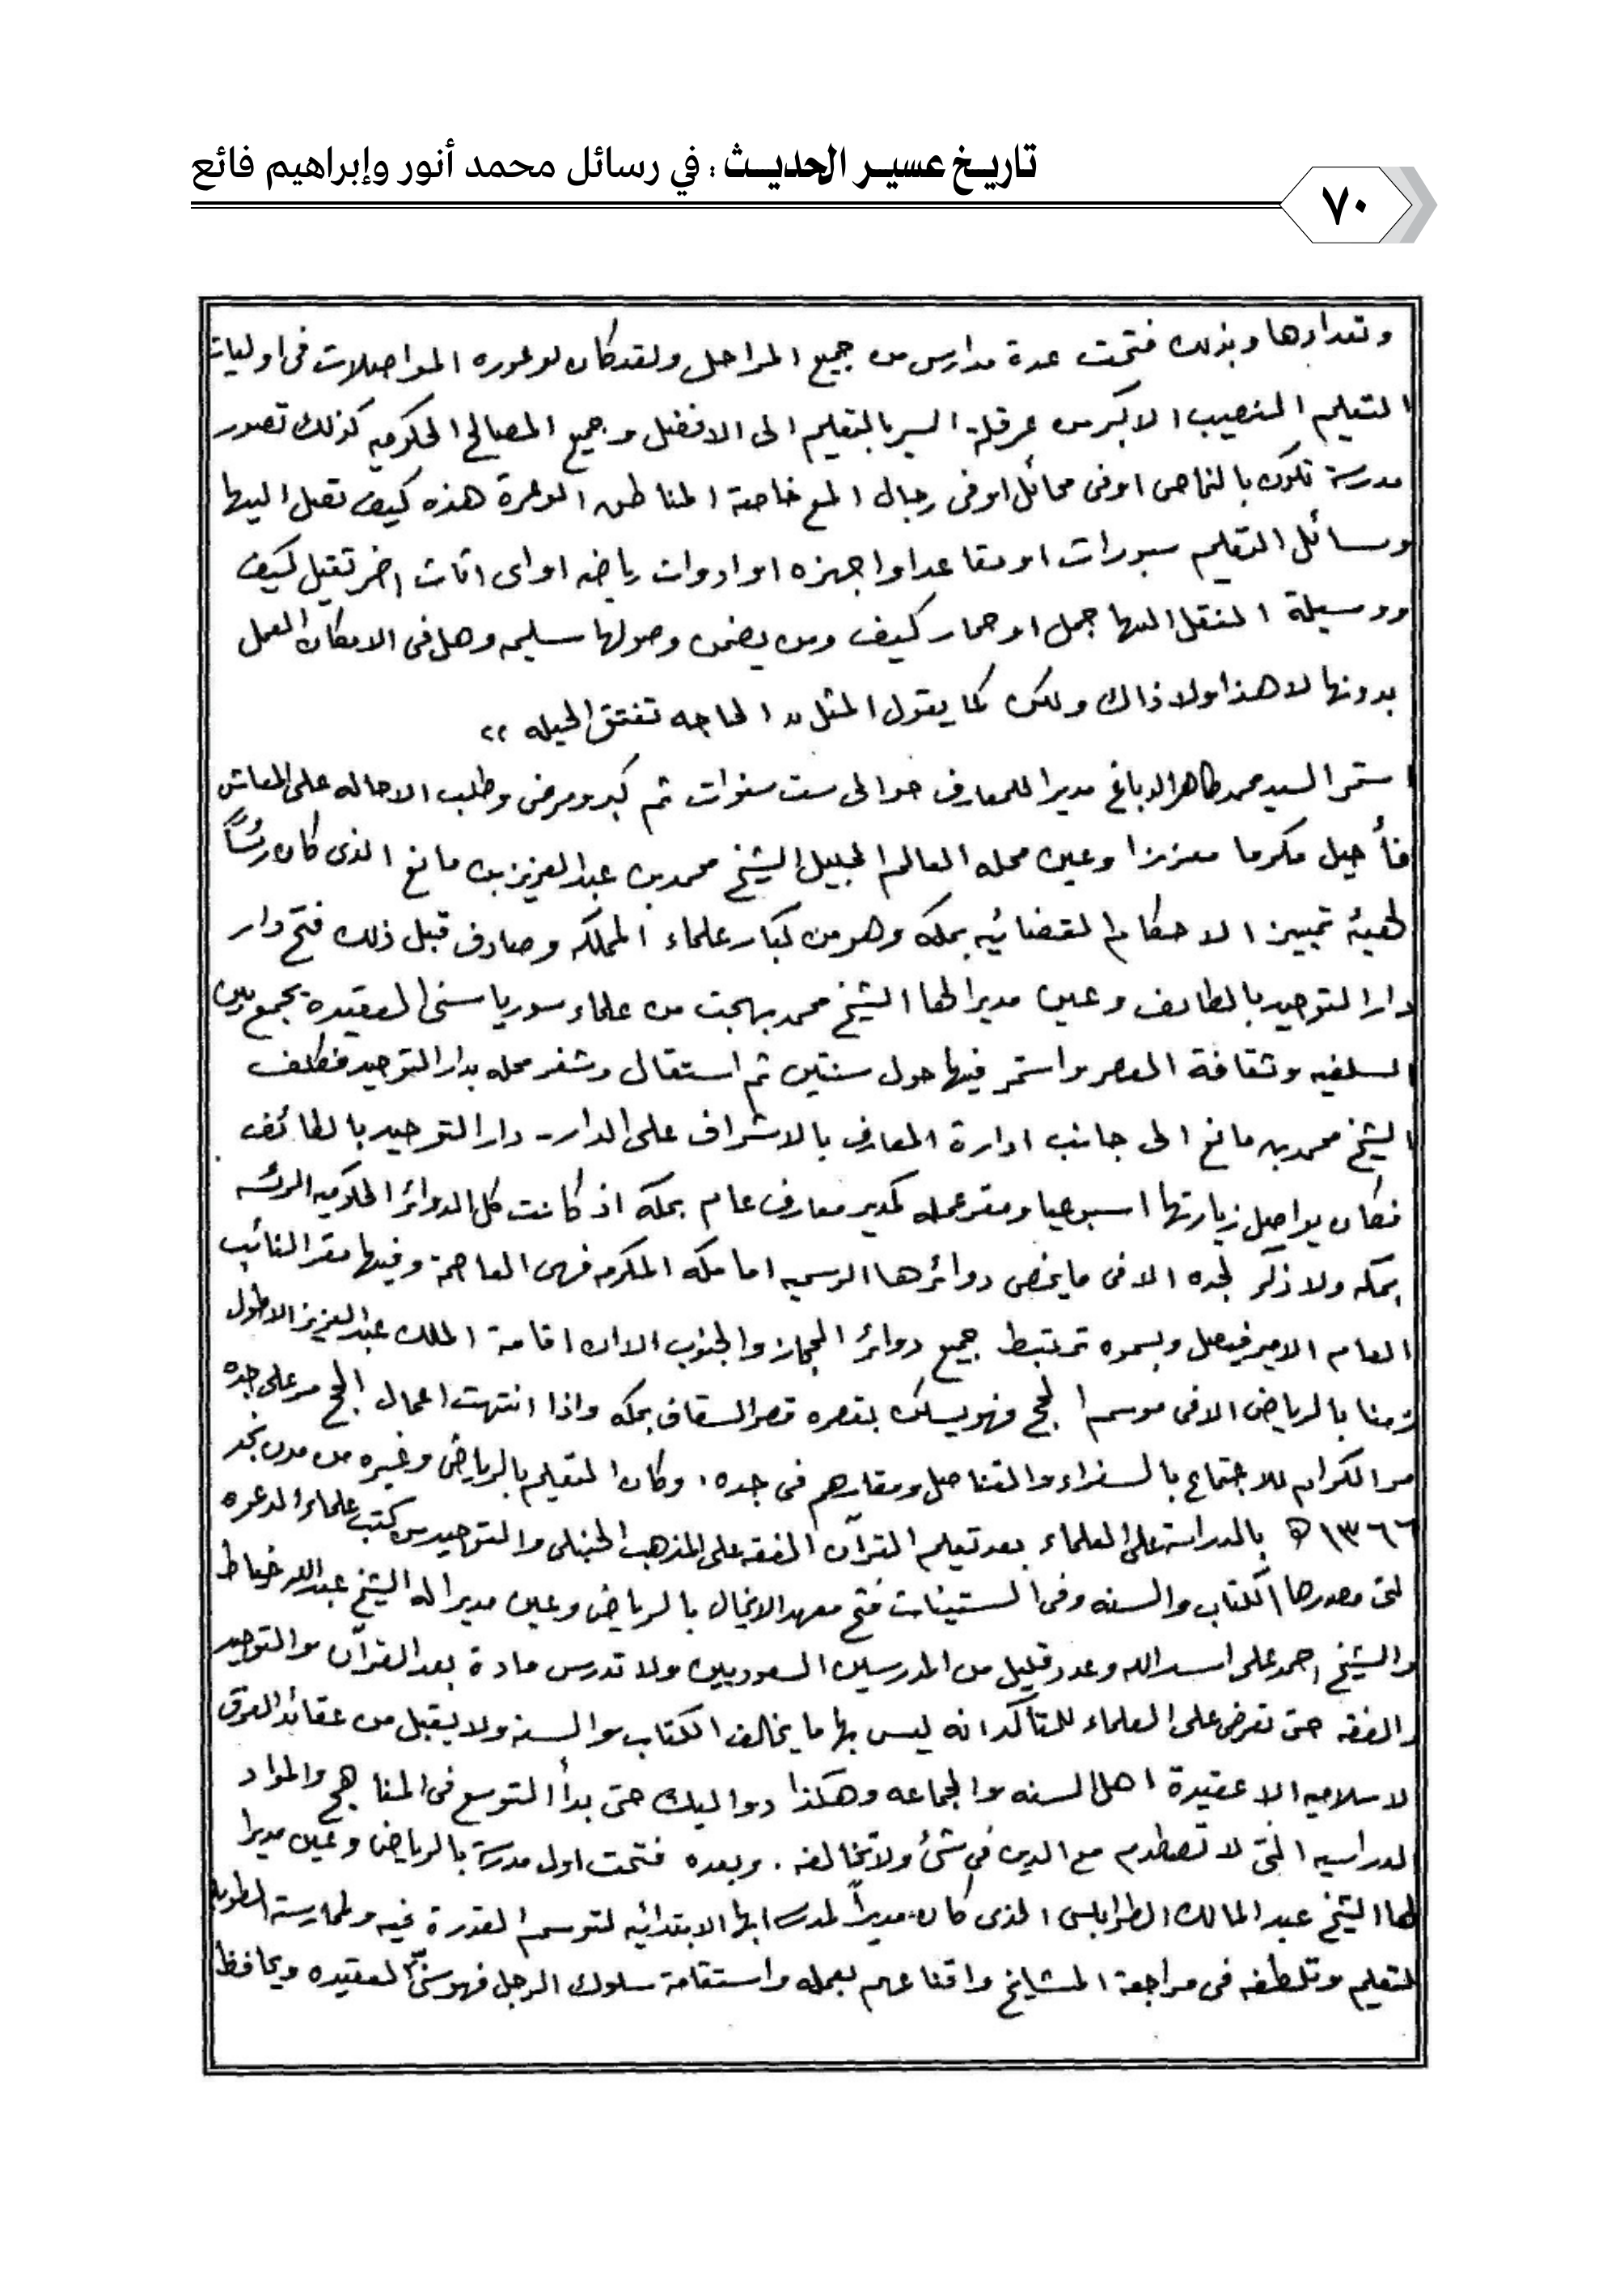 تاريخ عسير الحديث : في رسائل محمد أنور وإبراهيم فائع
٧٠
وتعدادها وبذلك فتحت عدة مدارس من جميع المراحل ولقد كان لوعوره المواصلات فى اوليات
التعليم النصيب الاكبر من عرقلة السير بالتعليم الى الافضل وجميع المصالح الحكوميه كذلك تصور
مدرسة تكون بالنماص اوفى محائل اوفى رجال المع خاصة المناطق الوعرة هذه كيف تصل اليها
وسائل التعليم سبورات اومقاعد اواجهزه اوادوات رياضه اواى اثاث اخر ثقيل كيف
ووسيلة النقل اليها جمل او حمار كيف ومن يضمن وصولها سليمه وهل فى الامكان العمل
بدونها لا هذا ولا ذاك ولكن كما يقول المثل « الحاجه تفتق الحيله »
استمر السيد محمد طاهر الدباغ مديرا للمعارف حوالى ست سنوات ثم كبر ومرض وطلب الاحاله على المعاش
فأحيل مكرما معززا وعين محله العالم الجليل الشيخ محمد بن عبد العزيز بن مانع الذى كان رئيسًا
لهيئة تمييز الاحكام القضائيه بمكه وهو من كبار علماء المملكه وصادف قبل ذلك فتح دار
دار التوحيد بالطائف وعين مديرا لها الشيخ محمد بهجت من علماء سوريا سنى العقيدة يجمع بين
السلفيه وثقافة العصر واستمر فيها حول سنتين ثم استقال وشغر محله بدار التوحيد فكلف
الشيخ محمد بن مانع الى جانب ادارة المعارف بالاشراف على الدار - دار التوحيد بالطائف .
فكان يواصل زيارتها اسبوعيا ومقر عمله كمدير معارف عام بمكة اذ كانت كل الدوائر الحكوميه الرئسه
بمكه ولا ذكر لجده الا فى ما يخص دوائرها الرسميه اما مكه المكرمه فهى العاصمة وفيها مقر النائب
العام الامير فيصل وبسموه ترتبط جميع دوائر الحجاز والجنوب الا ان اقامة الملك عبد العزيز الاطول
زمنا بالرياض الا فى موسم الحج فهو يسكن بقصره قصر السقاف بمكه واذا انتهت اعمال الحج مر على جده
مر الكرام للاجتماع بالسفراء والقناصل ومقارهم فى جده ، وكان التعليم بالرياض وغيره من مدن نجد
١٣٦٦ ه بالدراسة على العلماء بعد تعليم القرآن الفقه على المذهب الحنبلى والتوحيد من كتب علماء الدعوه
التى مصدرها الكتاب والسنه وفى الستينات فتح معهد الانجال بالرياض وعين مديرا له الشيخ عبد الله خياط
والشيخ احمد على اسد الله وعدد قليل من المدرسين السعوديين ولا تدرس مادة بعد القرآن والتوحيد
والفقه حتى تعرض على العلماء للتأكد انه ليس بها ما يخالف الكتاب والسنه ولا يقبل من عقائد الفرق
الاسلاميه الا عقيدة اهل السنه والجماعه وهكذا دواليك حتى بدأ التوسع فى المناهج والمواد
الدراسيه التى لا تصطدم مع الدين فى شئ ولا تخالفه . وبعده فتحت اول مدرسة بالرياض وعين مديرا
لها الشيخ عبد المالك الطرابلسى الذى كان مديراً لمدرسة ابها الابتدائيه لتوسم القدرة فيه ولممارسته الطويله
للتعليم وتلطفه فى مراجعة المشايخ واقناعهم بعمله واستقامة سلوك الرجل فهو سنىّ العقيده ويحافظ